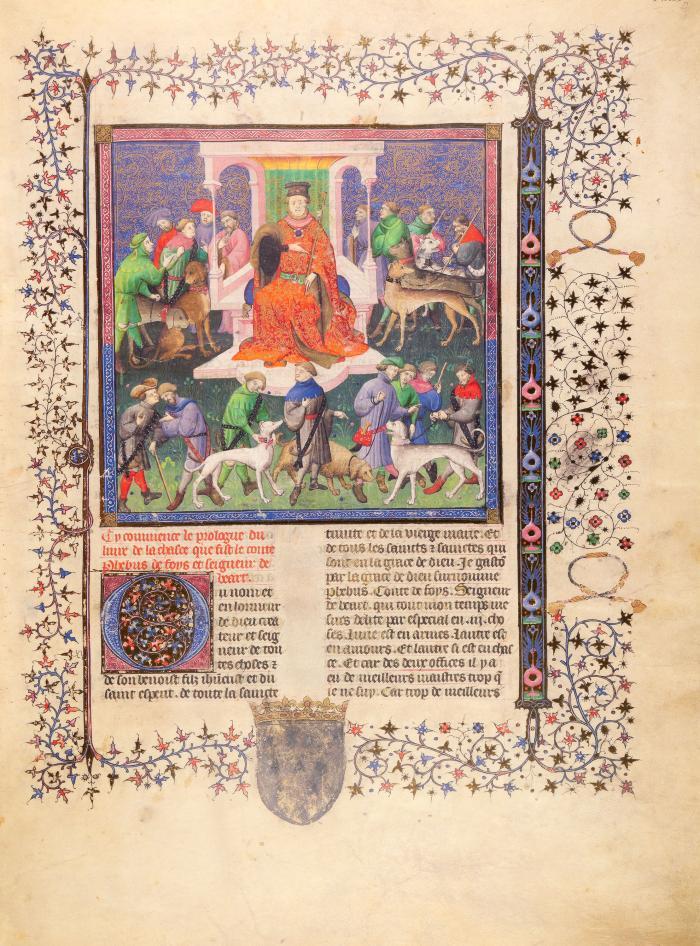 Cy commence le prologue du
liure de la chasse que fist le conte
phebus de foys et seigneur de
bearn.
Ou nom et
en lonneur
de dieu crea
teur et seig
neur de tou
tes choses ⁊
de son benoist filz ihucrist et du
saint esperit . de toute la saincte
trinite et de la vierge marie. Et
de tous les saincts ⁊ sainctes qui
sont en la grace de dieu. Je gastō
par la grace de dieu surnomme
phebus. Conte de foys. Seigneur
de bearn. qui tout mon temps me
suis delite par especial en .iii. cho
ses. Lune est en armes. lautre est
en amours. Et lautre si est en chas
ce. Et car des deux offices il y a
eu de meilleurs maistres trop q̄
ie ne suy. Car trop de meilleurs